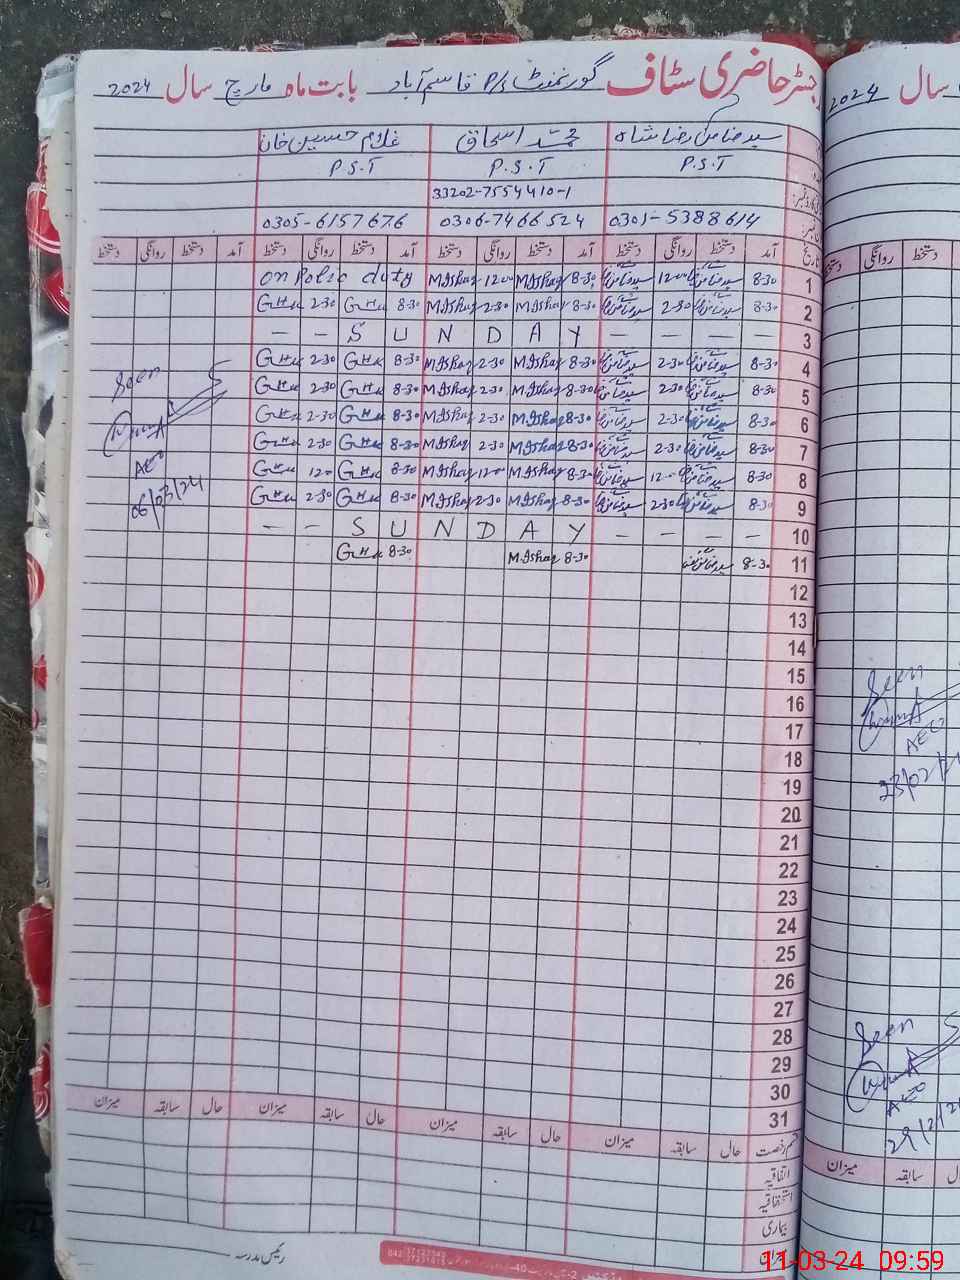 رجسٹر حاضری سٹاف گورنمنٹ P/S قاسم آباد بابت ماہ مارچ سال 2024
سید ضامن رضا شاہ محمد اسحاق غلام حسین خان
P.S.T P.S.T P.S.T
33202-7554410-1
0301-5388614 0306-7466524 0305-6157676
تاریخ آمد دستخط روانگی دستخط آمد دستخط روانگی دستخط آمد دستخط روانگی دستخط آمد دستخط روانگی دستخط
1 8-30 12-00 8-30 M.Ishaq 12-00 M.Ishaq on Polio duty
2 8-30 2-30 8-30 M.Ishaq 2-30 M.Ishaq 8-30 GHK 2-30 GHK
3 — — S U N D A Y — —
4 8-30 2-30 8-30 M.Ishaq 2-30 M.Ishaq 8-30 GHK 2-30 GHK
5 8-30 2-30 8-30 M.Ishaq 2-30 M.Ishaq 8-30 GHK 2-30 GHK
6 8-30 2-30 8-30 M.Ishaq 2-30 M.Ishaq 8-30 GHK 2-30 GHK
7 8-30 2-30 8-30 M.Ishaq 2-30 M.Ishaq 8-30 GHK 2-30 GHK
8 8-30 12-00 8-30 M.Ishaq 12-00 M.Ishaq 8-30 GHK 12-00 GHK
9 8-30 2-30 8-30 M.Ishaq 2-30 M.Ishaq 8-30 GHK 2-30 GHK
10 — — S U N D A Y — — — —
11 8-30 8-30 M.Ishaq 8-30 GHK
12
13
14
15
16
17
18
19
20
21
22
23
24
25
26
27
28
29
30
31
Seen
AEO
06/03/24
قسم رخصت حال سابقہ میزان حال سابقہ میزان حال سابقہ میزان حال سابقہ میزان
اتفاقیہ
استحقاقیہ
بیماری
میزان
رئیس مدرسہ
سال
2024
روانگی دستخط
Seen
AEO
Seen
AEO
میزان سابقہ
11-03-24 09:59